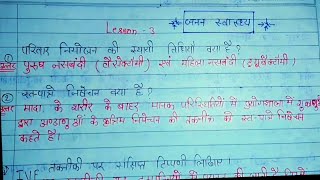 Lesson - 3 → जनन स्वास्थ्य
① परिवार नियोजन की स्थायी विधियाँ क्या है ?
उत्तर पुरुष नसबंदी (वासेक्टोमी) एवं महिला नसबंदी (ट्यूबेक्टोमी)
② परखनली निषेचन क्या है ?
उत्तर मादा के शरीर के बाहर मानक परिस्थितियों में प्रयोगशाला में शुक्राणुओं
द्वारा अण्डाणुओं के कृत्रिम निषेचन की तकनीक को
कहते हैं।
IVF तकनीकी पर संक्षिप्त टिप्पणी लिखिए।